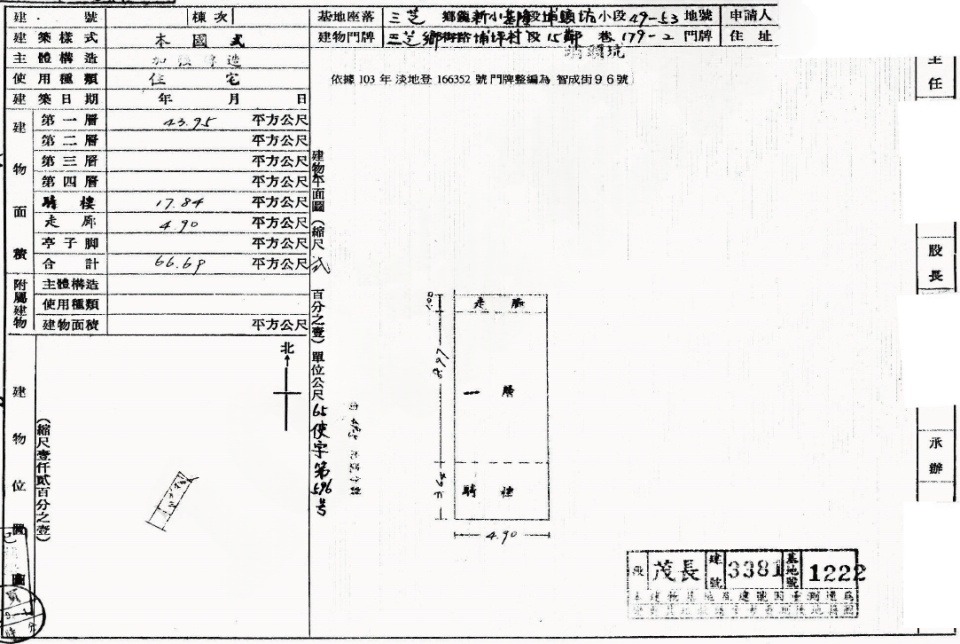 建 號
棟次
建築樣式 本國式
主體構造 加強磚造
使用種類 住宅
建築日期 年 月 日
建物面積
第一層 43.95 平方公尺
第二層 平方公尺
第三層 平方公尺
第四層 平方公尺
騎樓 17.84 平方公尺
走廊 4.90 平方公尺
亭子脚 平方公尺
合計 66.69 平方公尺
附屬建物
主體構造
使用種類
建物面積 平方公尺
基地座落 三芝鄉鎮新小基隆段埔頭坑小段49-53地號
建物門牌 三芝鄉街路埔坪村段15鄰巷179-2門牌
埔頭坑
申請人
住址
依據 103 年 淡地登 166352 號門牌整編為 智成街96號
主任
股長
承辦
建物平面圖(縮尺貳百分之壹)單位公尺
65使字第596号
北
建物位置圖
(縮尺壹仟貳百分之壹)
1.00
走廊
8.97
一層
3.64
騎樓
4.90
段 茂長 建號 3381 基地號 1222